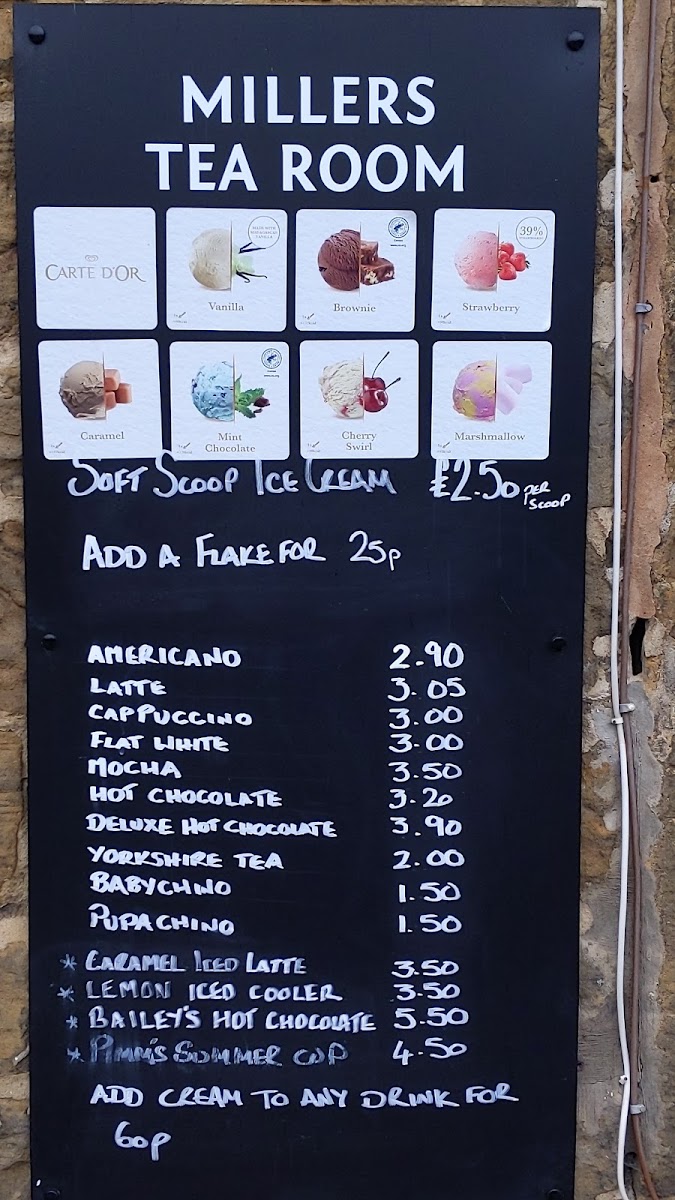 MILLERS
TEA ROOM
CARTE D'OR
Vanilla
Brownie
39%
Strawberry
Caramel
Mint
Chocolate
Cherry
Swirl
Marshmallow
SOFT SCOOP ICE CREAM £2.50 PER SCOOP
ADD A FLAKE FOR 25p
AMERICANO 2.90
LATTE 3.05
CAPPUCCINO 3.00
FLAT WHITE 3.00
MOCHA 3.50
HOT CHOCOLATE 3.20
DELUXE HOT CHOCOLATE 3.90
YORKSHIRE TEA 2.00
BABYCHINO 1.50
PUPACHINO 1.50
* CARAMEL ICED LATTE 3.50
* LEMON ICED COOLER 3.50
* BAILEY'S HOT CHOCOLATE 5.50
* PIMM'S SUMMER CUP 4.50
ADD CREAM TO ANY DRINK FOR
60p